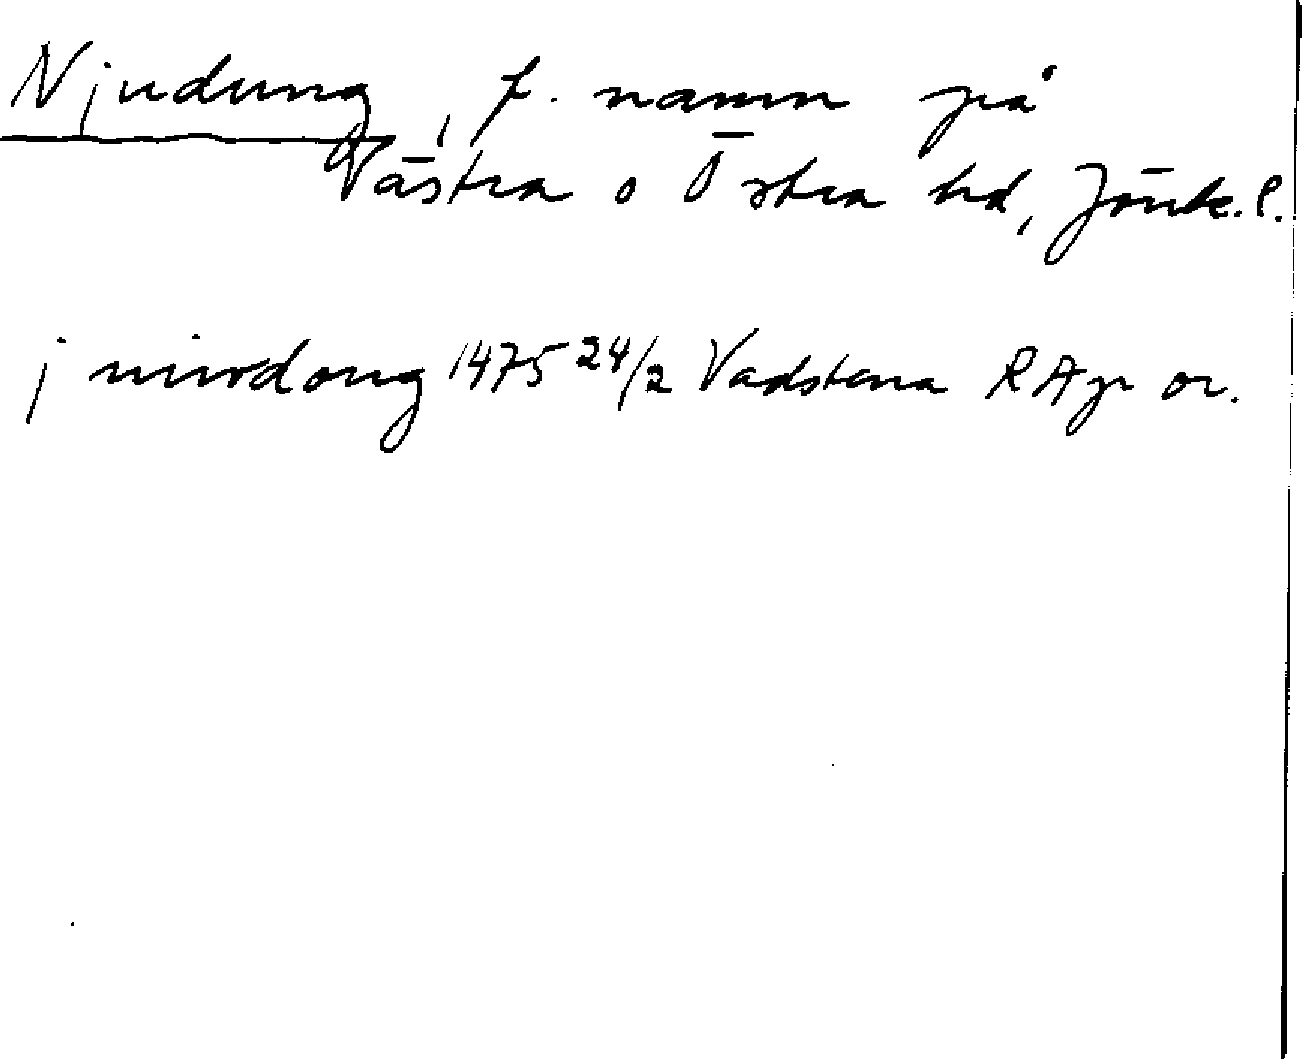 Njudung, f. namn på
Västra o Östra hd, Jönk. l.
j niwdong 1475 24/2 Vadstena RAp or.